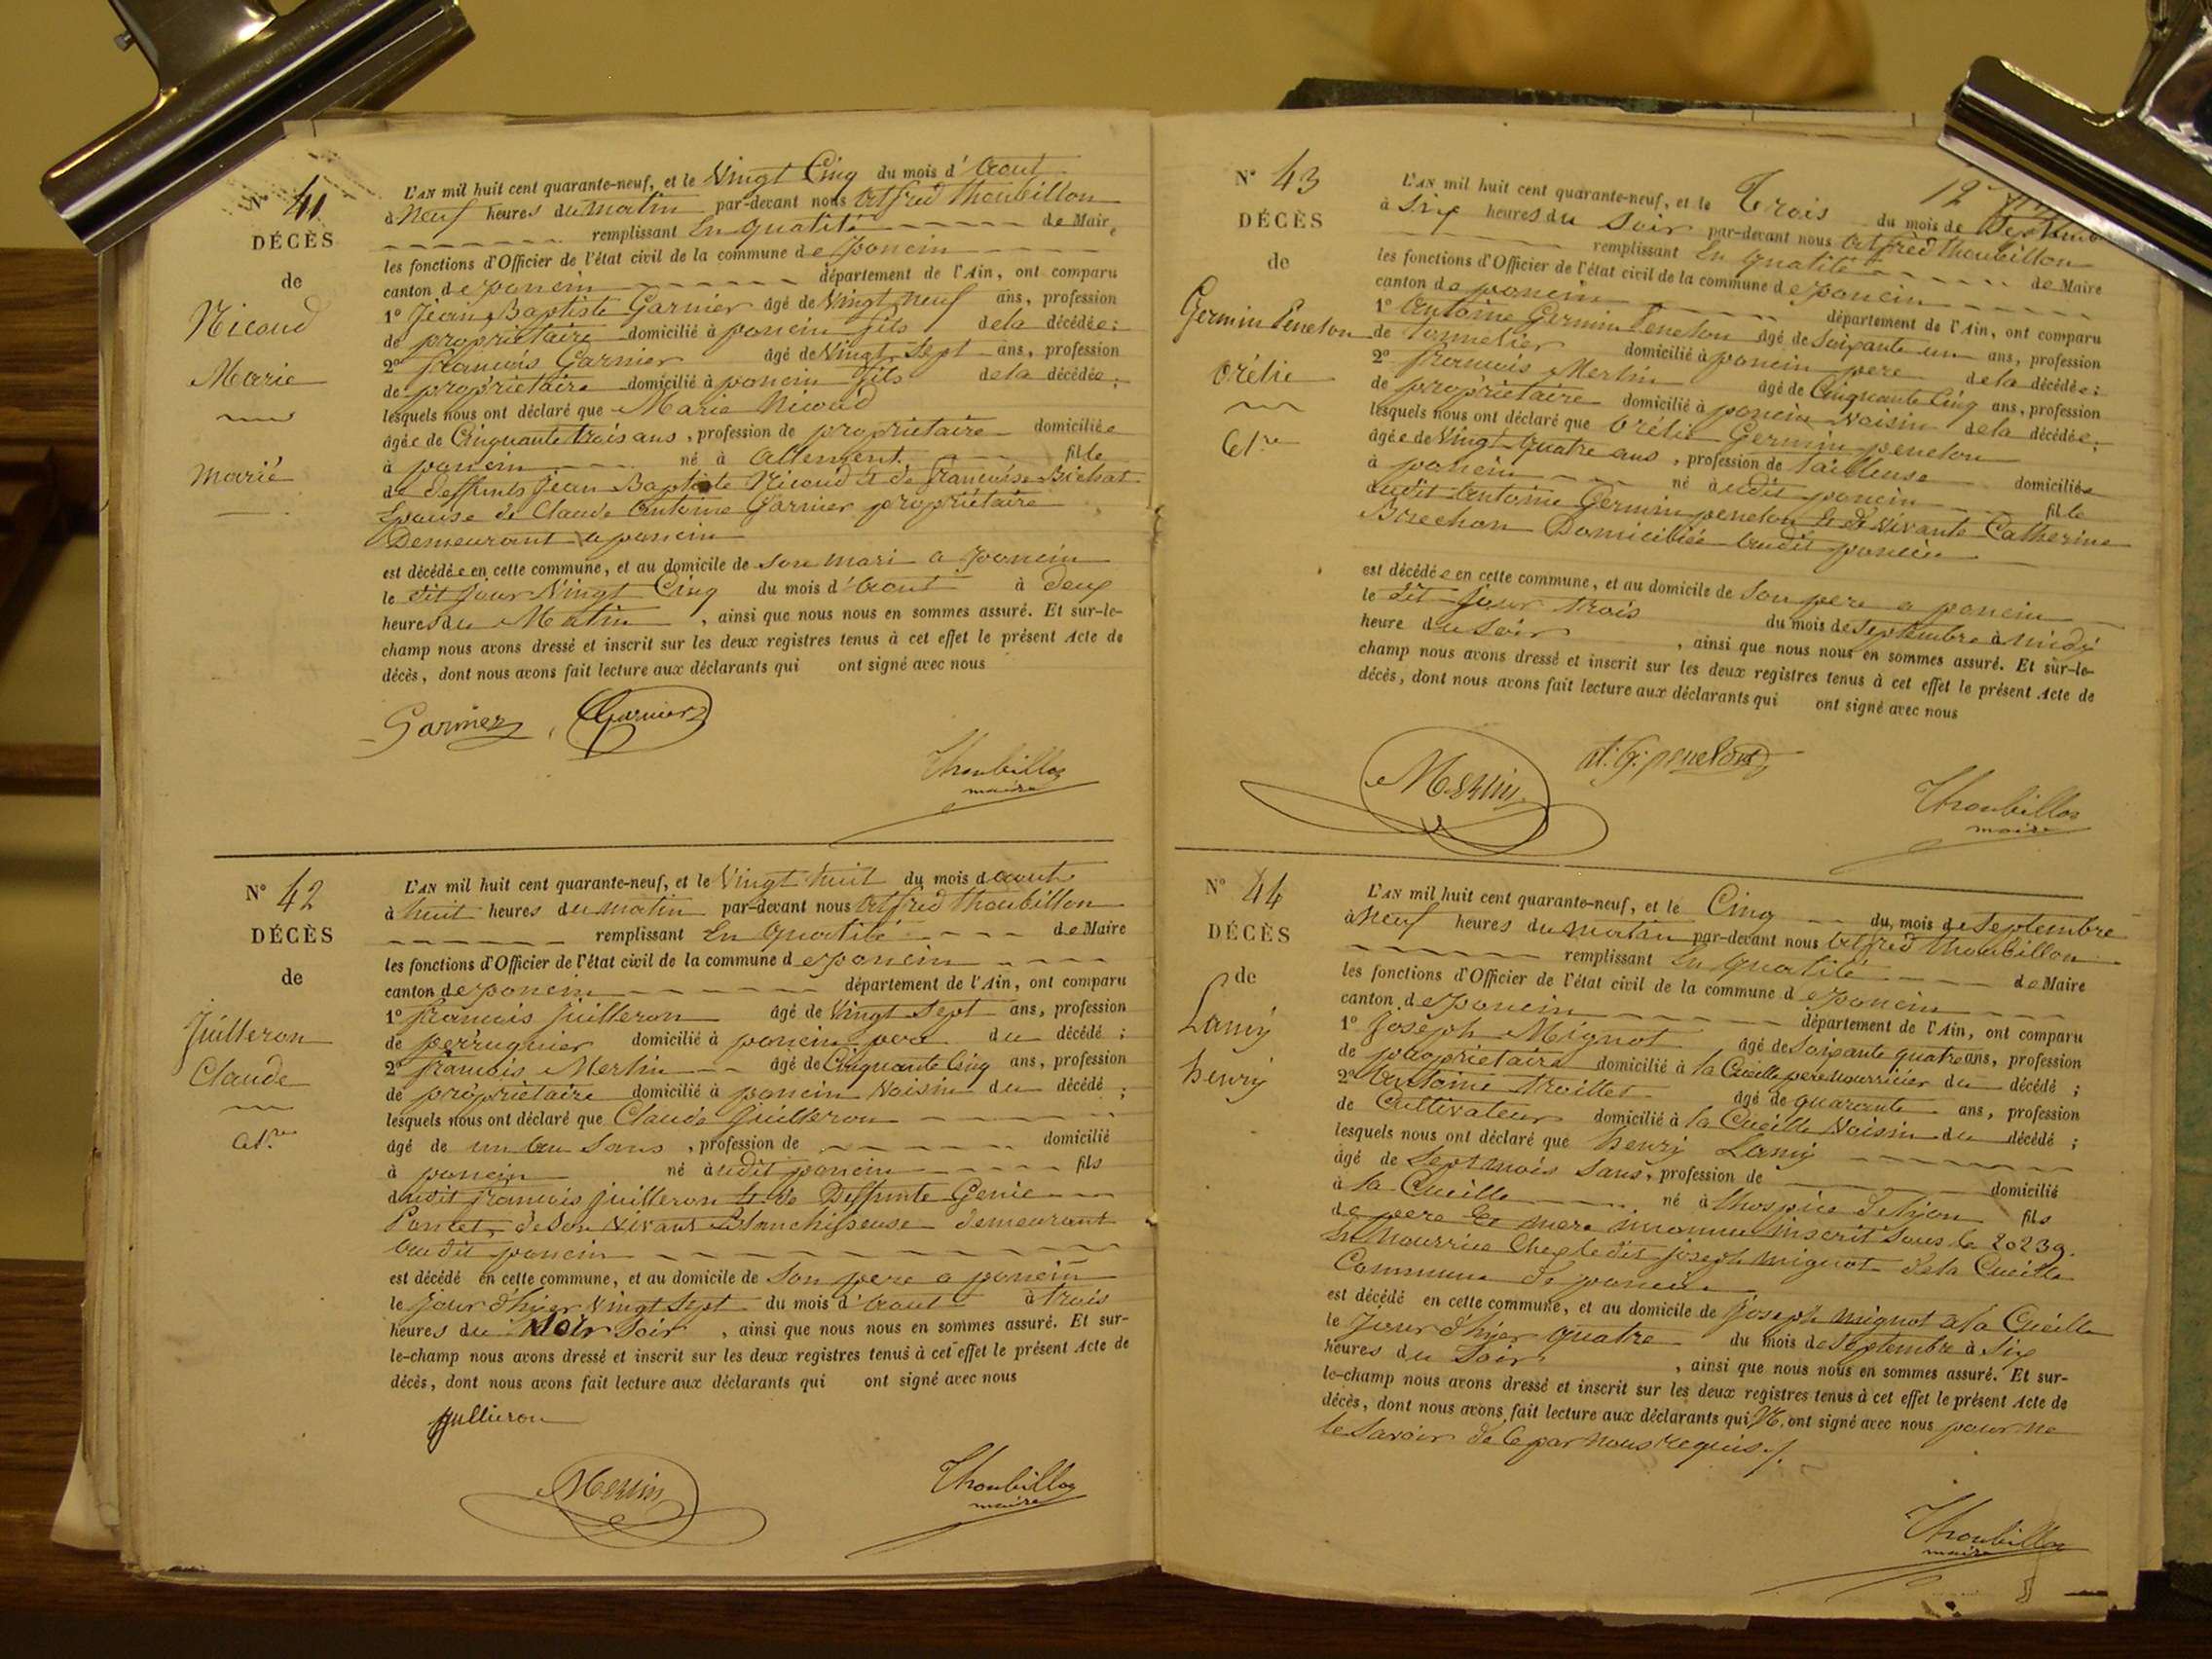 N° 41
DÉCÈS
de
Nicoud
Marie
marié
L'AN mil huit cent quarante-neuf, et le Vingt Cinq du mois d'Aout
à Neuf heures du matin par-devant nous Alfred Thoubillon
remplissant En qualité de Maire
les fonctions d'Officier de l'état civil de la commune de poncin
canton de poncin département de l'Ain, ont comparu
1° Jean Baptiste Garnier âgé de Vingt neuf ans, profession
de propriétaire domicilié à poncin fils de la décédée;
2° francois Garnier âgé de Vingt Sept ans, profession
de propriétaire domicilié à poncin fils de la décédée;
lesquels nous ont déclaré que Marie Nicoud
âgée de Cinquante trois ans, profession de propriétaire domiciliée
à poncin né à Allement fille
de deffunts Jean Baptiste Nicoud et de francoise Bichat
Epouse de Claude Antoine Garnier propriétaire
Demeurant a poncin
est décédée en cette commune, et au domicile de son mari a poncin
le dit jour Vingt Cinq du mois d'Aout à deux
heures du Matin, ainsi que nous nous en sommes assuré. Et sur-le-
champ nous avons dressé et inscrit sur les deux registres tenus à cet effet le présent Acte de
décès, dont nous avons fait lecture aux déclarants qui ont signé avec nous
Garnier, Garnier
Thoubillon
maire
N° 42
DÉCÈS
de
Juilleron
Claude
L'AN mil huit cent quarante-neuf, et le Vingt huit du mois d'aout
à huit heures du matin par-devant nous Alfred Thoubillon
remplissant En qualité de Maire
les fonctions d'Officier de l'état civil de la commune de poncin
canton de poncin département de l'Ain, ont comparu
1° francois Juilleron âgé de Vingt Sept ans, profession
de perruquier domicilié à poncin pere du décédé;
2° francois Merlin âgé de Cinquante Cinq ans, profession
de propriétaire domicilié à poncin Voisin du décédé;
lesquels nous ont déclaré que Claude Juilleron
âgé de un an Sans, profession de domicilié
à poncin né audit poncin fils
dudit francois juilleron et de Deffunte Genie
Poncet, de Son Vivant Blanchisseuse demeurant
audit poncin
est décédé en cette commune, et au domicile de Son pere a poncin
le jour d'hier Vingt Sept du mois d'Aout à trois
heures du Soir Soir, ainsi que nous nous en sommes assuré. Et sur-
le-champ nous avons dressé et inscrit sur les deux registres tenus à cet effet le présent Acte de
décès, dont nous avons fait lecture aux déclarants qui ont signé avec nous
Jullieron
Merlin
Thoubillon
maire
N° 43
DÉCÈS
de
Germin Peneton
Orélie
Cl.re
L'AN mil huit cent quarante-neuf, et le Trois du mois de Septembre
à Six heures du Soir par-devant nous Alfred Thoubillon
remplissant En qualité de Maire
les fonctions d'Officier de l'état civil de la commune de poncin
canton de poncin département de l'Ain, ont comparu
1° Antoine Germin Peneton âgé de Soixante un ans, profession
de Tonnelier domicilié à poncin pere de la décédée;
2° francois Merlin âgé de Cinquante Cinq ans, profession
de propriétaire domicilié à poncin Voisin de la décédée;
lesquels nous ont déclaré que Orélie Germin peneton
âgée de Vingt quatre ans, profession de tailleuse domiciliée
à poncin né audit poncin fille
dudit Antoine Germin peneton et de Vivante Catherine
Brechon Domiciliée audit poncin
est décédée en cette commune, et au domicile de Son pere a poncin
le dit jour trois du mois de Septembre à midi
heure du Soir, ainsi que nous nous en sommes assuré. Et sur-le-
champ nous avons dressé et inscrit sur les deux registres tenus à cet effet le présent Acte de
décès, dont nous avons fait lecture aux déclarants qui ont signé avec nous
Merlin
A. G. peneton
Thoubillon
maire
N° 44
DÉCÈS
de
Lamy
henry
L'AN mil huit cent quarante-neuf, et le Cinq du mois de Septembre
à Neuf heures du matin par-devant nous Alfred Thoubillon
remplissant En qualité de Maire
les fonctions d'Officier de l'état civil de la commune de poncin
canton de poncin département de l'Ain, ont comparu
1° Joseph Mignot âgé de Soixante quatre ans, profession
de propriétaire domicilié à la Cueille pere nourricier du décédé;
2° Antoine Troillet âgé de quarante ans, profession
de Cultivateur domicilié à la Cueille Voisin du décédé;
lesquels nous ont déclaré que henry Lamy
âgé de Sept mois Sans, profession de domicilié
à la Cueille né à lhospice de lyon fils
de pere et mere inconnu inscrit Sous le 20239.
En Nourrice Chez ledit joseph mignot de la Cueille
Commune de poncin
est décédé en cette commune, et au domicile de joseph mignot a la Cueille
le jour d'hier quatre du mois de Septembre à Six
heures du Soir, ainsi que nous nous en sommes assuré. Et sur-
le-champ nous avons dressé et inscrit sur les deux registres tenus à cet effet le présent Acte de
décès, dont nous avons fait lecture aux déclarants qui N. ont signé avec nous pour ne
le Savoir de ce par nous requis./.
Thoubillon
maire